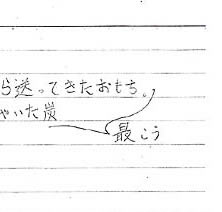 ら送ってきたおもち。
ゃいた炭
最こう